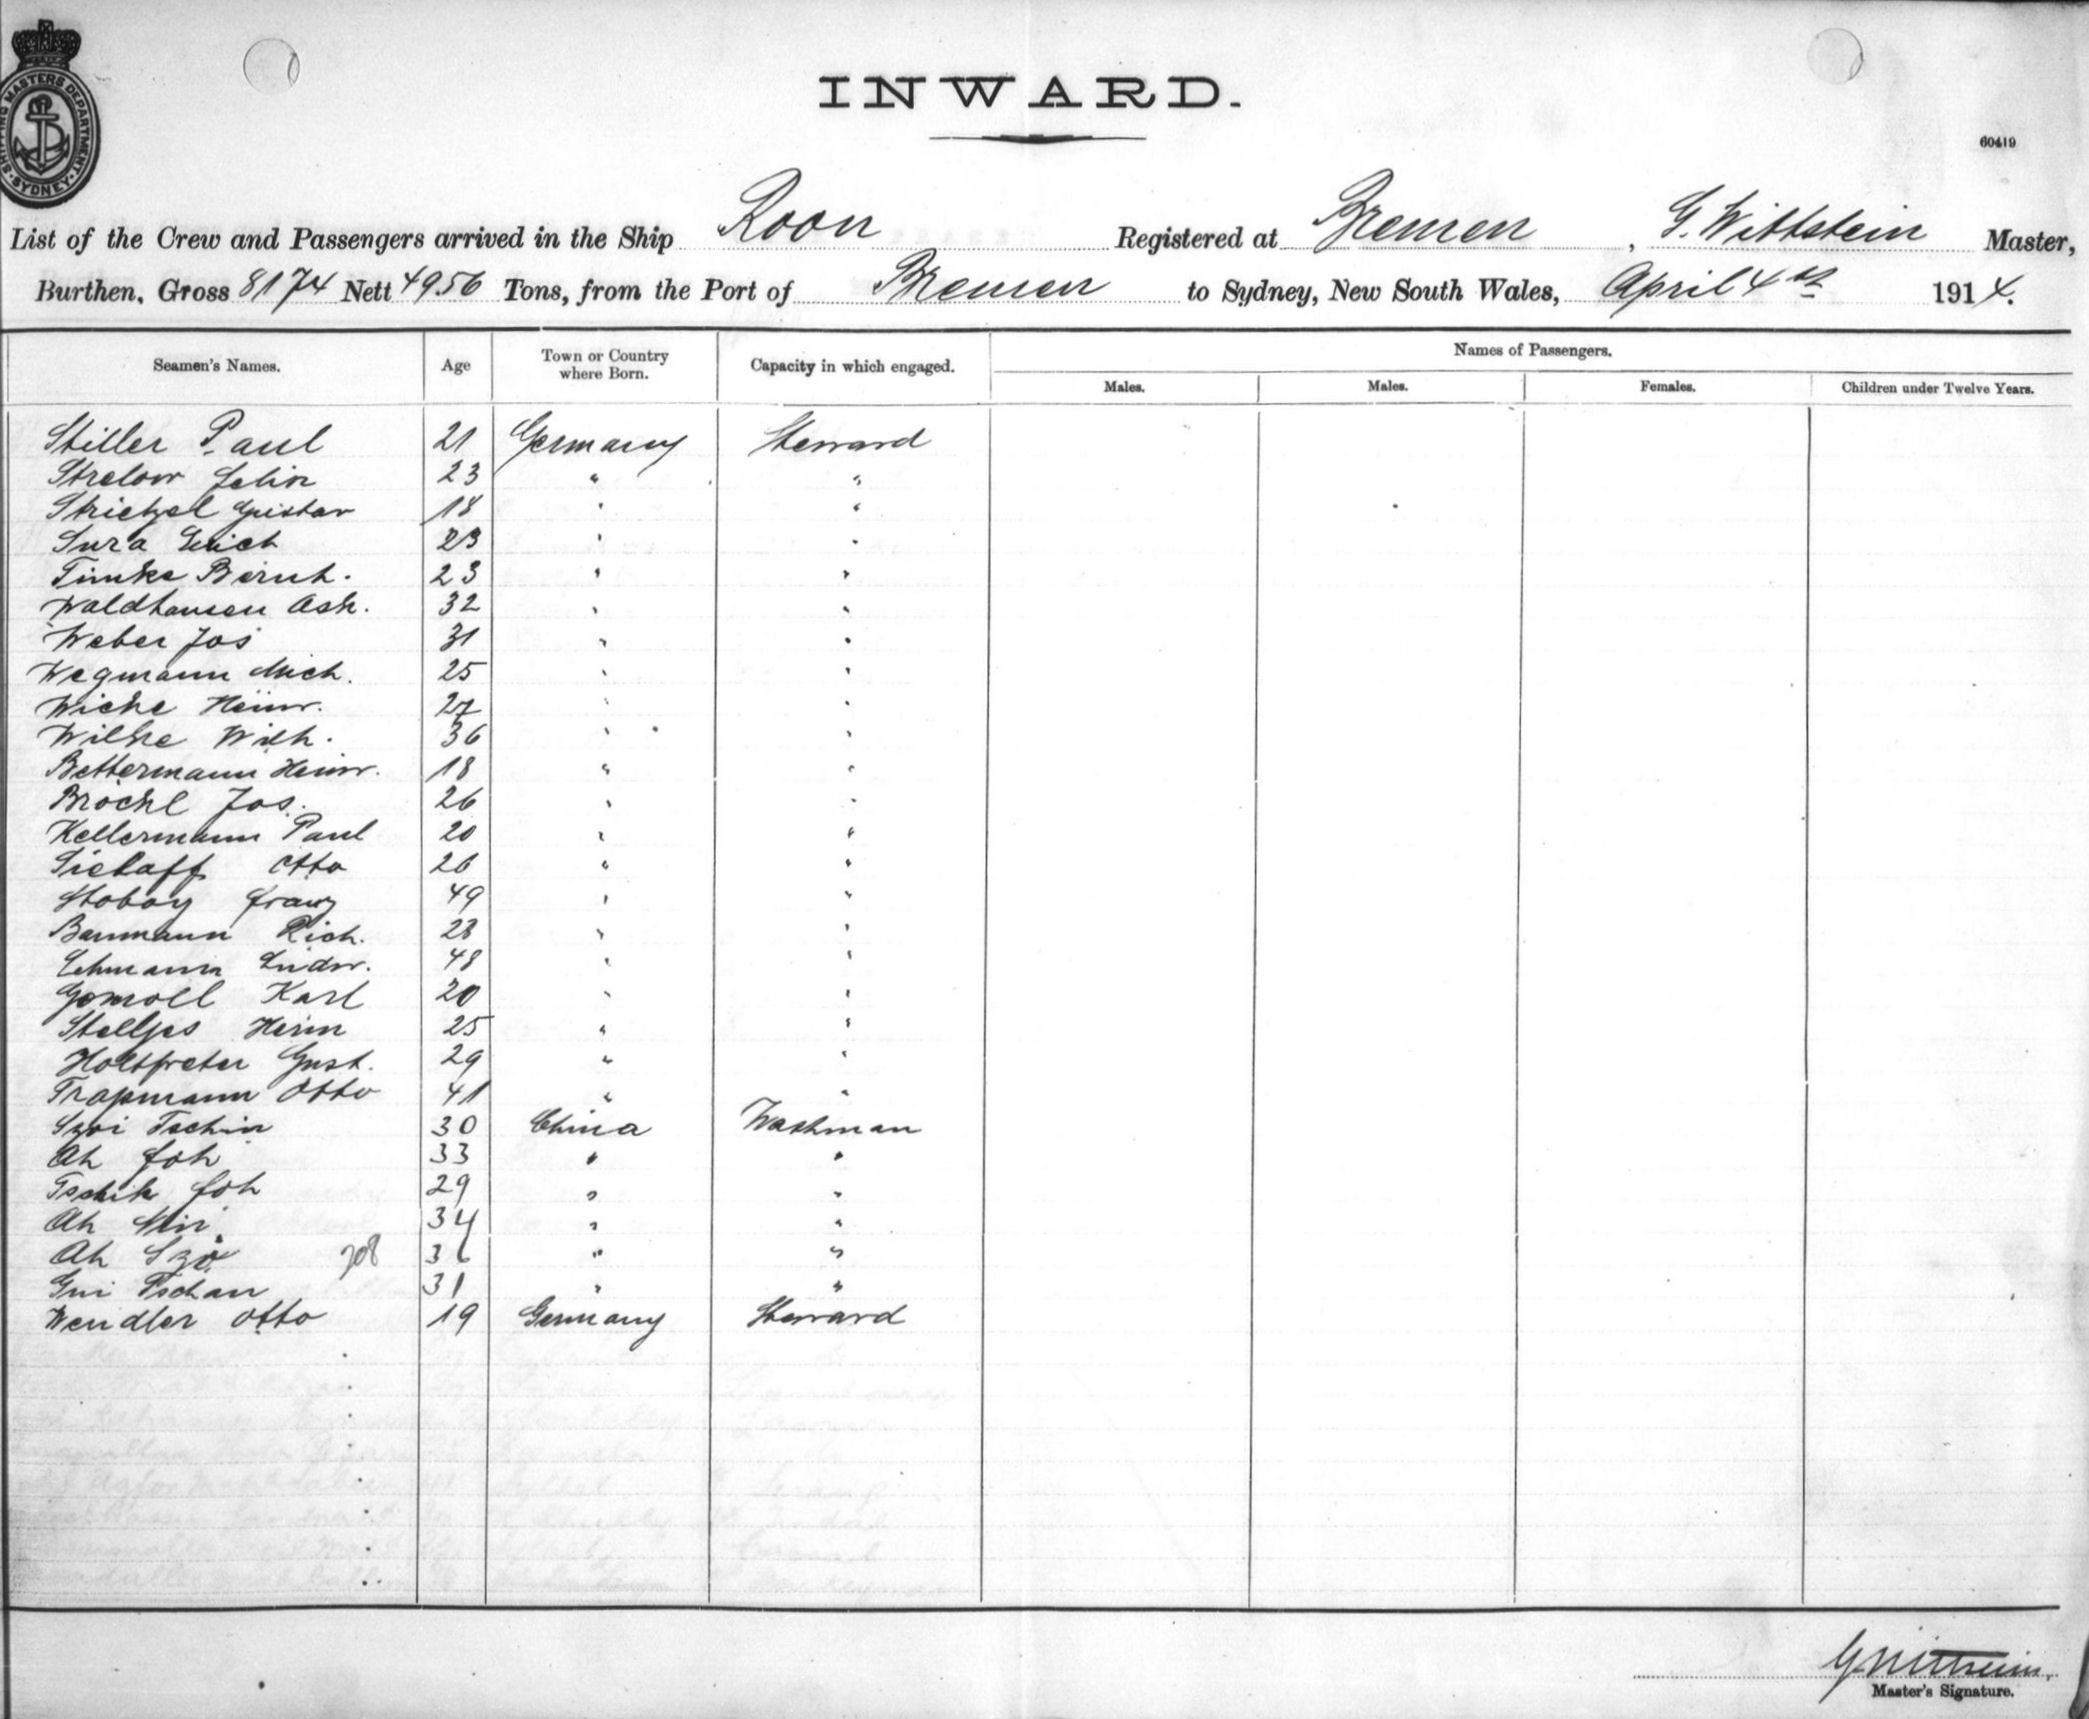 SHIPPING MASTERS DEPARTMENT · SYDNEY ·
INWARD.
60419
List of the Crew and Passengers arrived in the Ship Roon Registered at Bremen, G. Wittstein Master,
Burthen, Gross 8174 Nett 4956 Tons, from the Port of Bremen to Sydney, New South Wales, April 4th 1914.
Seamen's Names. Age Town or Country where Born. Capacity in which engaged. Names of Passengers.
Males. Males. Females. Children under Twelve Years.
Stiller Paul 21 Germany Steward
Strelow Felix 23 " "
Strietzel Gustav 18 " "
Sura Erich 23 " "
Timke Bernh. 23 " "
Waldhausen Osk. 32 " "
Weber Jos 31 " "
Wegmann Mich. 25 " "
Wicke Heinr. 27 " "
Wilke Wilh. 36 " "
Bettermann Heinr. 18 " "
Bröckl Jos. 26 " "
Kellermann Paul 20 " "
Sielaff Otto 26 " "
Stoboy Franz 49 " "
Baumann Rich. 28 " "
Lehmann Ludw. 48 " "
Gomoll Karl 20 " "
Stelljes Herm 25 " "
Holtfreter Gust. 29 " "
Trapmann Otto 41 " "
Szoi Tschin 30 China Washman
Ah Foh 33 " "
Tschik Foh 29 " "
Ah Min 34 " "
Ah Szo 208 36 " "
Gui Tschan 31 " "
Wendler Otto 19 Germany Steward
G. Wittstein
Master's Signature.